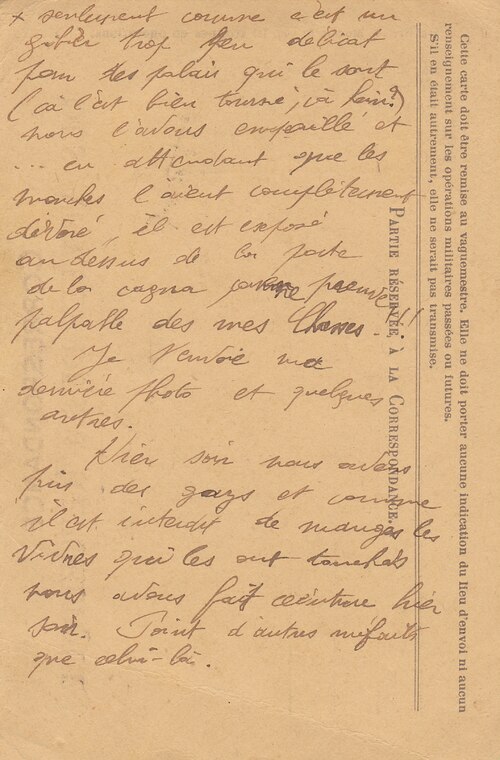 x seulement comme c'est un
gibier trop peu délicat
pour des palais qui le sont
(ça l'est bien tourné, ça hein?)
nous l'avons empaillé et
... en attendant que les
mouches l'aient complètement
dévoré, il est exposé
au dessus de la porte
de la cagna comme preuve
palpable des mes Chasses!!
Je t'envoie ma
dernière photo et quelques
autres.
Hier soir nous avons
pris des gazs et comme
il est interdit de manger les
vivres qui les ont touchés
nous avons fait ceinture hier
soir. Point d'autres méfaits
que celui-là.
Cette carte doit être remise au vaguemestre. Elle ne doit porter aucune indication du lieu d'envoi ni aucun
renseignement sur les opérations militaires passées ou futures.
S'il en était autrement, elle ne serait pas transmise.
PARTIE RÉSERVÉE A LA CORRESPONDANCE.